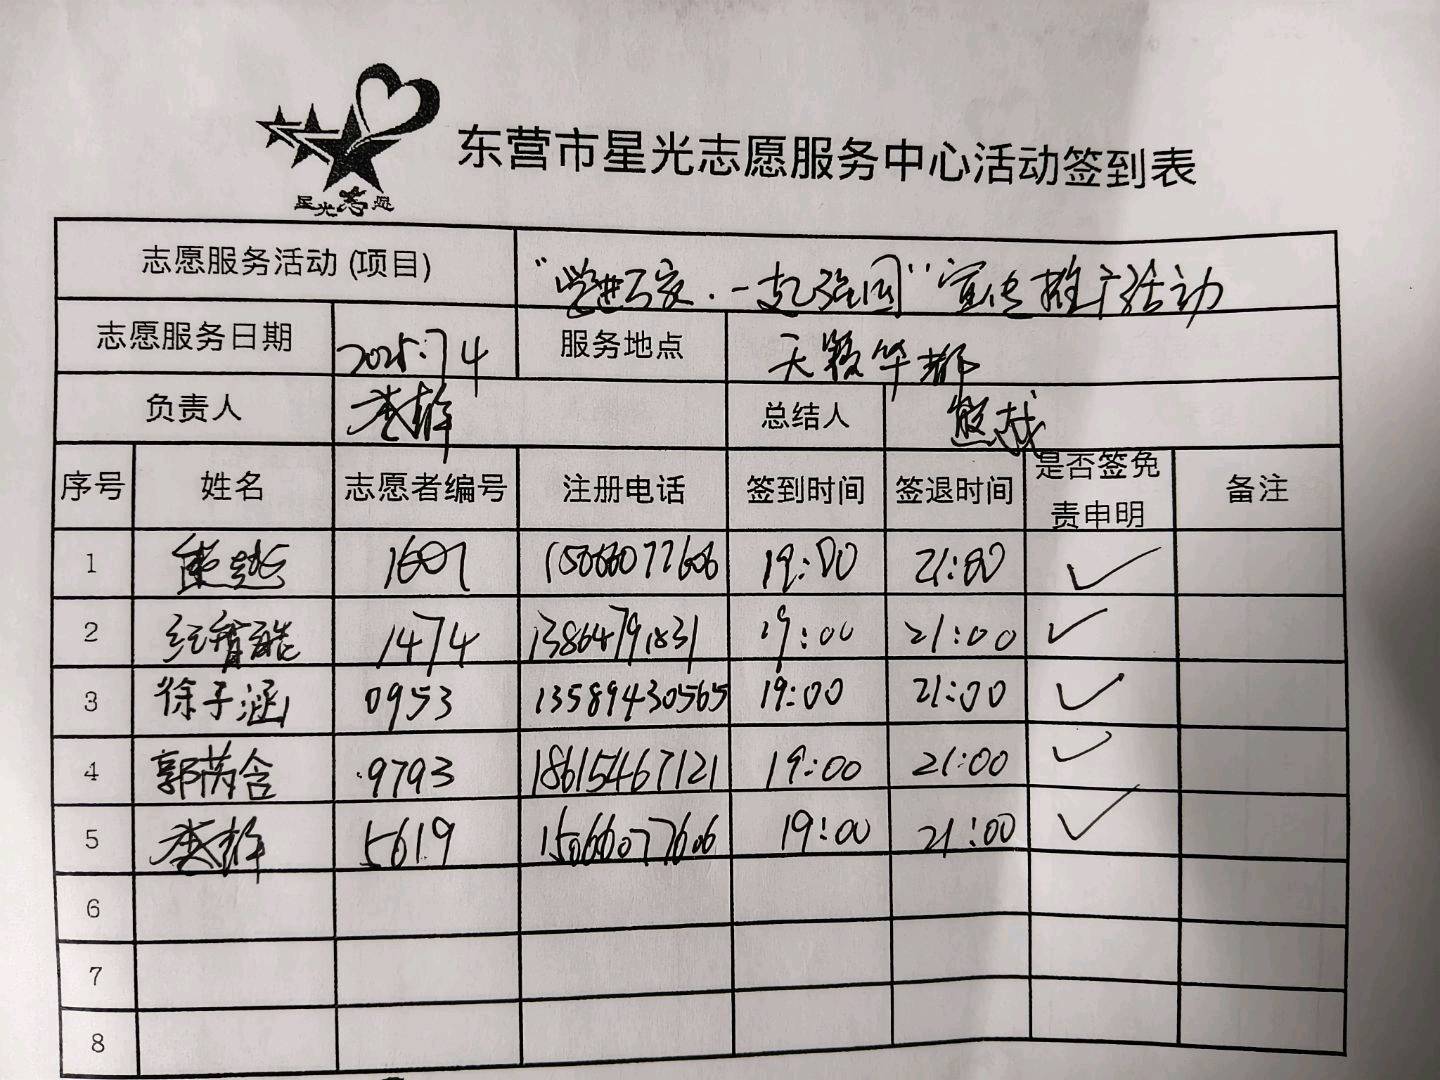 星光志愿
东营市星光志愿服务中心活动签到表
志愿服务活动 (项目) "学进万家·一起强国"宣传推广活动
志愿服务日期 2025.7 4 服务地点 天颐华都
负责人 总结人 熊越
序号 姓名 志愿者编号 注册电话 签到时间 签退时间 是否签免责申明 备注
1 熊越 1607 15066077606 19:00 21:00 ✓
2 1474 13864791831 19:00 21:00 ✓
3 徐子涵 0953 13589430565 19:00 21:00 ✓
4 郭芮含 9793 18615467121 19:00 21:00 ✓
5 5619 15066077606 19:00 21:00 ✓
6
7
8